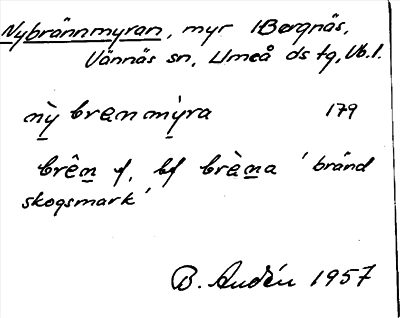 Nybrännmyran, myr i Bergnäs,
Vännäs sn, Umeå ds tg, Vb. l.
nỳ bren mỳra 179
brên f, bf brèna ' bränd
skogsmark'
B. Audén 1957